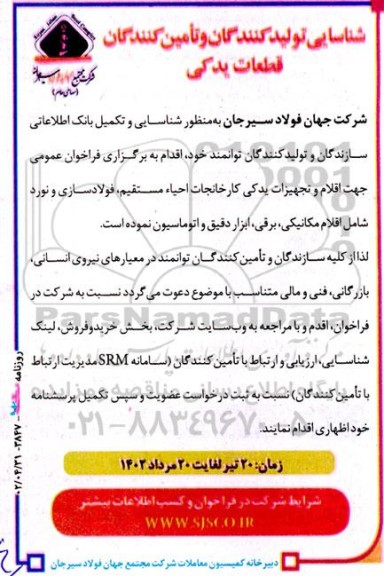 شناسایی تولیدکنندگان و تأمین‌کنندگان
قطعات یدکی
شرکت جهان فولاد سیرجان به‌منظور شناسایی و تکمیل بانک اطلاعاتی
سازندگان و تولیدکنندگان توانمند خود، اقدام به برگزاری فراخوان عمومی
جهت اقلام و تجهیزات یدکی کارخانجات احیاء مستقیم، فولادسازی و نورد
شامل اقلام مکانیکی، برقی، ابزار دقیق و اتوماسیون نموده است.
لذا از کلیه سازندگان و تأمین‌کنندگان توانمند در معیارهای نیروی انسانی،
بازرگانی، فنی و مالی متناسب با موضوع دعوت می‌گردد نسبت به شرکت در
فراخوان، اقدام و با مراجعه به وب‌سایت شرکت، بخش خرید و فروش، لینک
شناسایی، ارزیابی و ارتباط با تأمین‌کنندگان (سامانه SRM مدیریت ارتباط
با تأمین‌کنندگان) نسبت به ثبت درخواست عضویت و سپس تکمیل پرسشنامه
خوداظهاری اقدام نمایند.
زمان: ۲۰ تیر لغایت ۲۰ مرداد ۱۴۰۲
شرایط شرکت در فراخوان و کسب اطلاعات بیشتر
WWW.SJSCO.IR
دبیرخانه کمیسیون معاملات شرکت مجتمع جهان فولاد سیرجان
ParsNamadData
۰۲۱-۸۸۳۴۹۶۷۰-۵
روزنامه